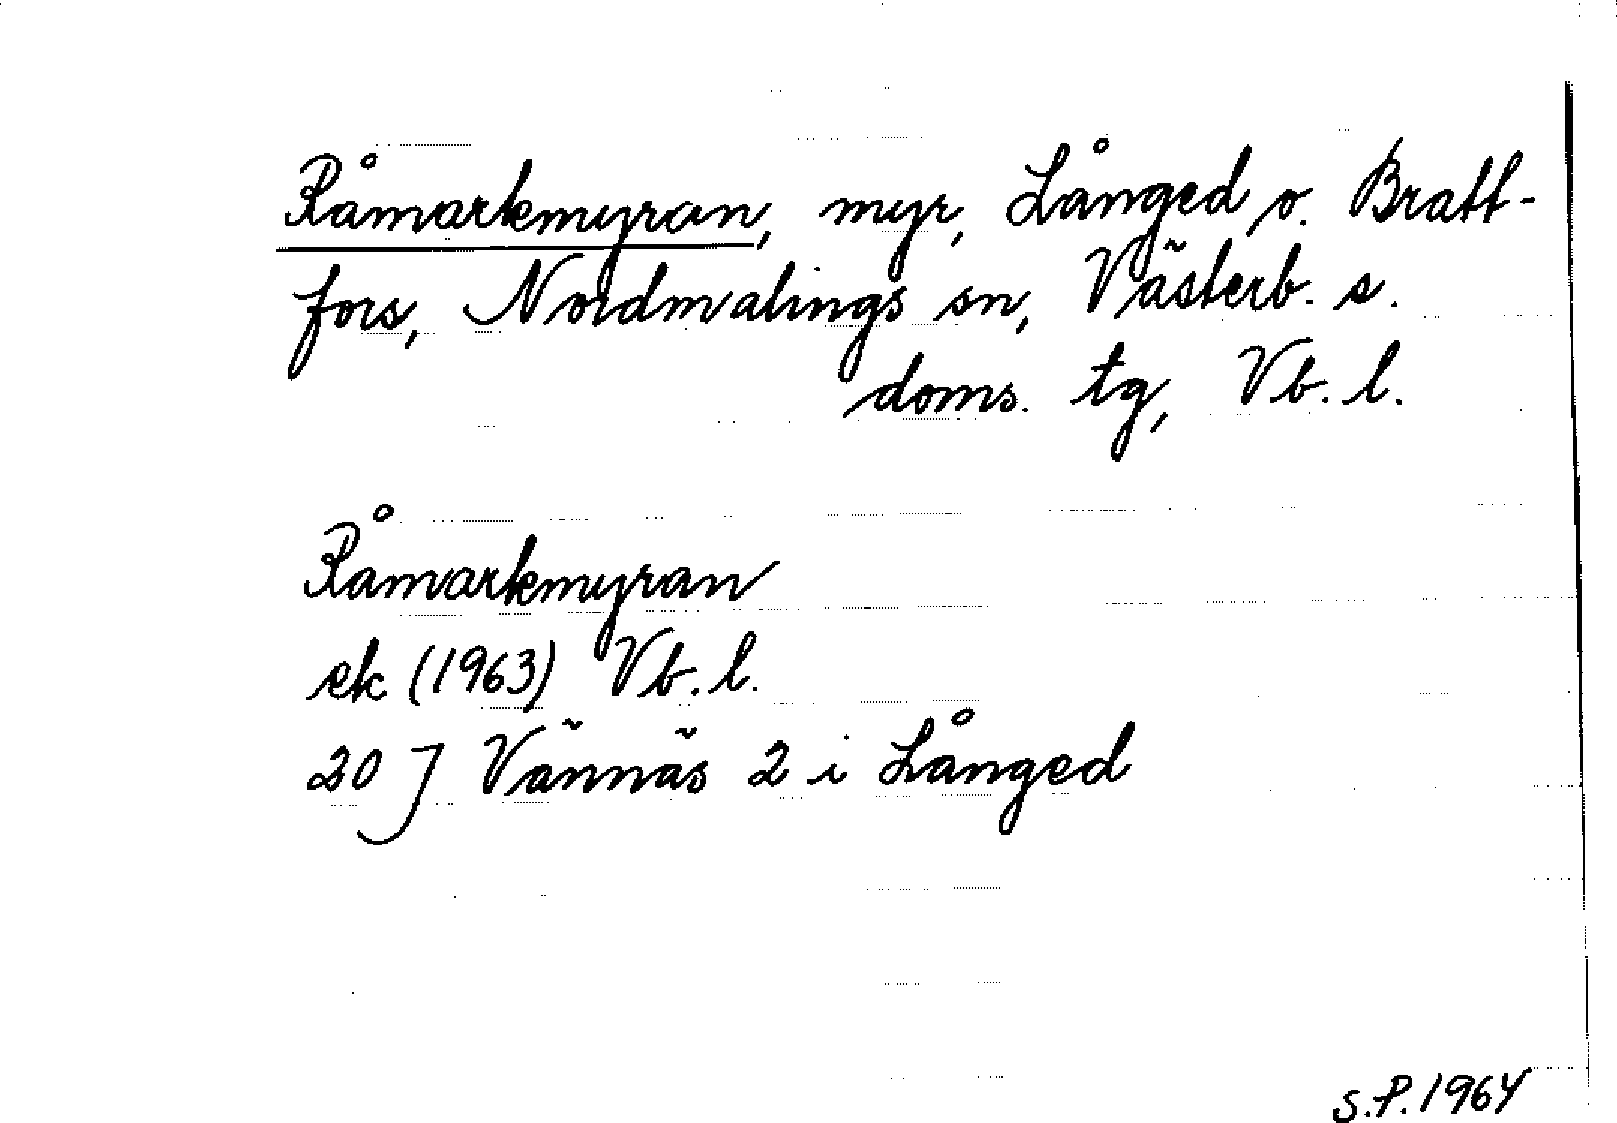 Råmarkmyran, myr, Långed o. Bratt-
fors, Nordmalings sn, Västerb. s.
doms. tg, Vb. l.
Råmarkmyran
ek (1963) Vb. l.
20 J Vännäs 2 i Långed
S.P. 1964